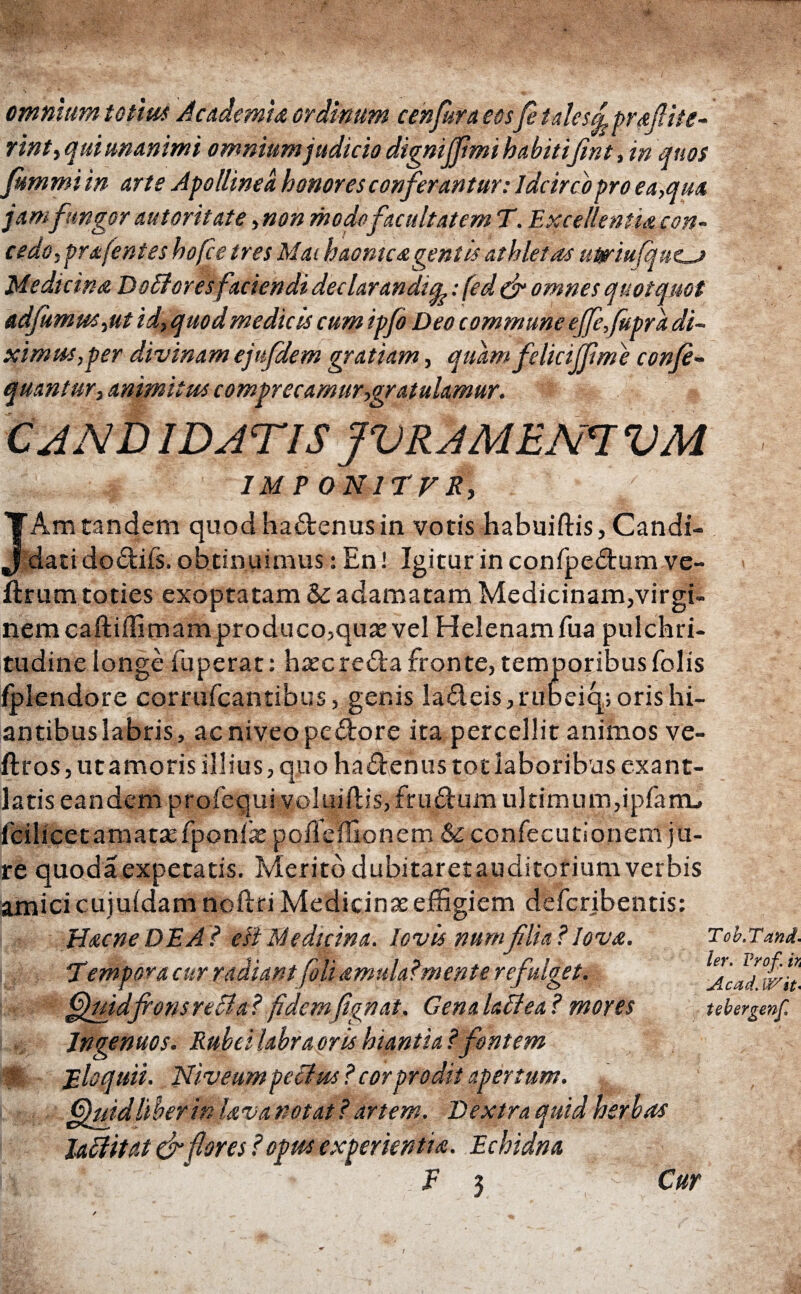 omnium totius Academiæ ordinum cenſura eos ſe talesq́; præſtite-
rint, qui unanimi omnium judicio digniſſimi habiti ſint, in quos
ſummi in arte Apollineâ honores conferantur: Idcircò pro ea, qua
jam fungor autoritate, non modo facultatem T. Excellentiæ con-
cedo, præſentes hoſce tres Machaonicæ gentis athletas utriuſque
Medicinæ Doctores faciendi declarandiq́;: ſed & omnes quotquot
adſumus, ut id, quod medicis cum ipſo Deo commune eſſe, ſuprà di-
ximus, per divinam ejuſdem gratiam, quàm feliciſſimè conſe-
quantur, animitus comprecamur, gratulamur.
CANDIDATIS JVRAMENTVM
IMPONITVR,
JAm tandem quod hactenus in votis habuiſtis, Candi-
dati doctiſs. obtinuimus: En! Igitur in conſpectum ve-
ſtrum toties exoptatam & adamatam Medicinam, virgi-
nem caſtiſſimam produco, quæ vel Helenam ſua pulchri-
tudine longè ſuperat: hæc recta fronte, temporibus ſolis
ſplendore corruſcantibus, genis lacteis, rubeiq́; oris hi-
antibus labris, ac niveo pectore ita percellit animos ve-
ſtros, ut amoris illius, quo hactenus tot laboribus exant-
latis eandem proſequi voluiſtis, fructum ultimum, ipſam
ſcilicet amatæ ſponſæ poſſeſſionem & conſecutionem ju-
re quodā expetatis. Meritò dubitaret auditorium verbis
amici cujuſdam noſtri Medicinæ effigiem deſcribentis:
Hæcne DEA? eſt Medicina. Iovis num filia? Iovæ.
Tempora cur radiant ſoli æmula? mente refulget.
Quid frons recta? fidem ſignat. Gena lactea? mores
Ingenuos. Rubei labra oris hiantia? fontem
Eloquii. Niveum pectus? cor prodit apertum.
Quid liber in læva notat? artem. Dextra quid herbas
lactitat & flores? opus experientiæ. Echidna
Tob. Tand-
ler. Prof. in
Acad. Wit-
tebergenſ.
F 3
Cur